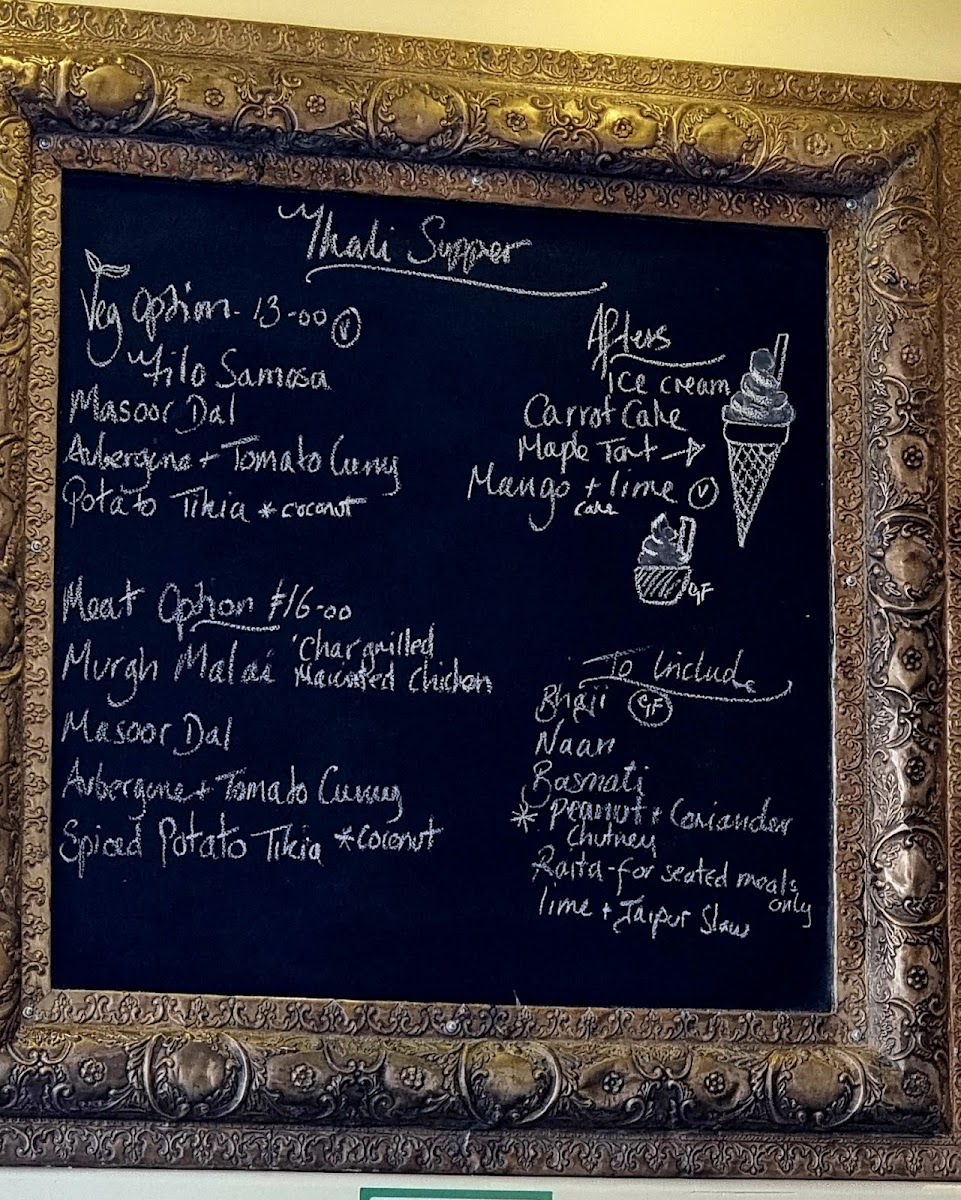 Thali Supper
Veg option - 13-00 V
Filo Samosa
Masoor Dal
Aubergine + Tomato Curry
Potato Tikia * coconut
Meat Option £16-00
Murgh Malai 'Chargrilled
Marinated Chicken
Masoor Dal
Aubergine + Tomato Curry
Spiced Potato Tikia *coconut
Afters
Ice cream
Carrot Cake
Maple Tart →
Mango + lime V
cake
GF
To Include
Bhaji GF
Naan
Basmati
* Peanut + Coriander
Chutney
Raita - for seated meals
only
lime + Jaipur Slaw